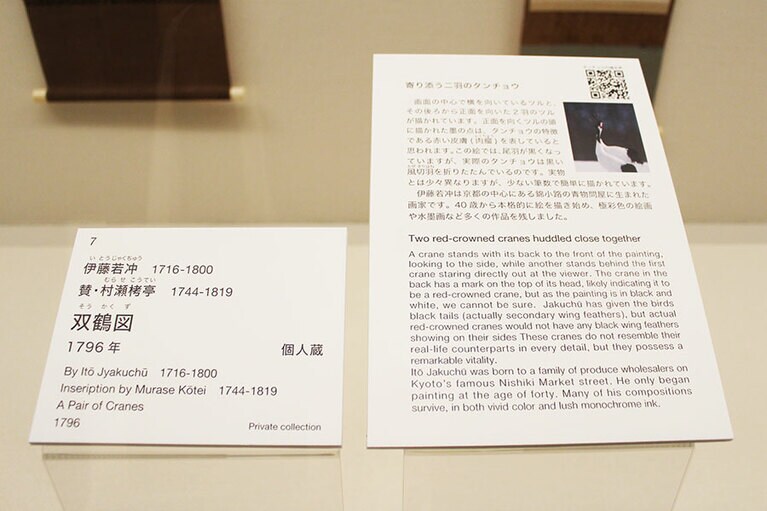 7
いとうじゃくちゅう
伊藤若冲 1716-1800
むらせこうてい
賛・村瀬栲亭 1744-1819
そうかくず
双鶴図
1796年
個人蔵
By Itō Jyakuchū 1716-1800
Inseription by Murase Kōtei 1744-1819
A Pair of Cranes
1796
Private collection
寄り添う二羽のタンチョウ
画面の中心で横を向いているツルと、
その後ろから正面を向いた2羽のツル
が描かれています。正面を向くツルの頭
に描かれた墨の点は、タンチョウの特徴
である赤い皮膚(肉瘤)を表していると
思われます。この絵では、尾羽が黒くなっ
ていますが、実際のタンチョウは黒い
風切羽を折りたたんでいるのです。実物
とは少々異なりますが、少ない筆数で簡単に描かれています。
伊藤若冲は京都の中心にある錦小路の青物問屋に生まれた
画家です。40歳から本格的に絵を描き始め、極彩色の絵画
や水墨画など多くの作品を残しました。
Two red-crowned cranes huddled close together
A crane stands with its back to the front of the painting,
looking to the side, while another stands behind the first
crane staring directly out at the viewer. The crane in the
back has a mark on the top of its head, likely indicating it to
be a red-crowned crane, but as the painting is in black and
white, we cannot be sure. Jakuchū has given the birds
black tails (actually secondary wing feathers), but actual
red-crowned cranes would not have any black wing feathers
showing on their sides These cranes do not resemble their
real-life counterparts in every detail, but they possess a
remarkable vitality.
Itō Jakuchū was born to a family of produce wholesalers on
Kyoto's famous Nishiki Market street. He only began
painting at the age of forty. Many of his compositions
survive, in both vivid color and lush monochrome ink.